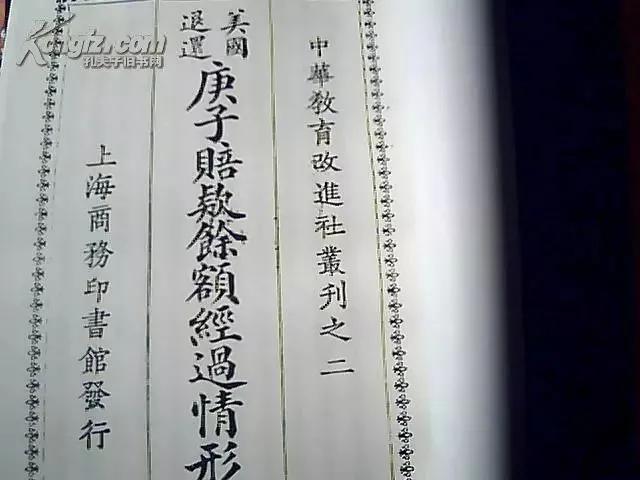 中華敎育改進社叢刊之二
美國
退還
庚子賠款餘額經過情形
上海商務印書館發行
Kongfz.com
孔夫子旧书网